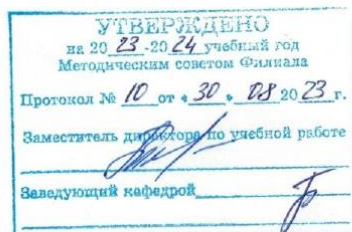 УТВЕРЖДЕНО
на 20 23 -20 24 учебный год
Методическим советом Филиала
Протокол № 10 от « 30 » 08 20 23 г.
Заместитель директора по учебной работе
Заведующий кафедрой